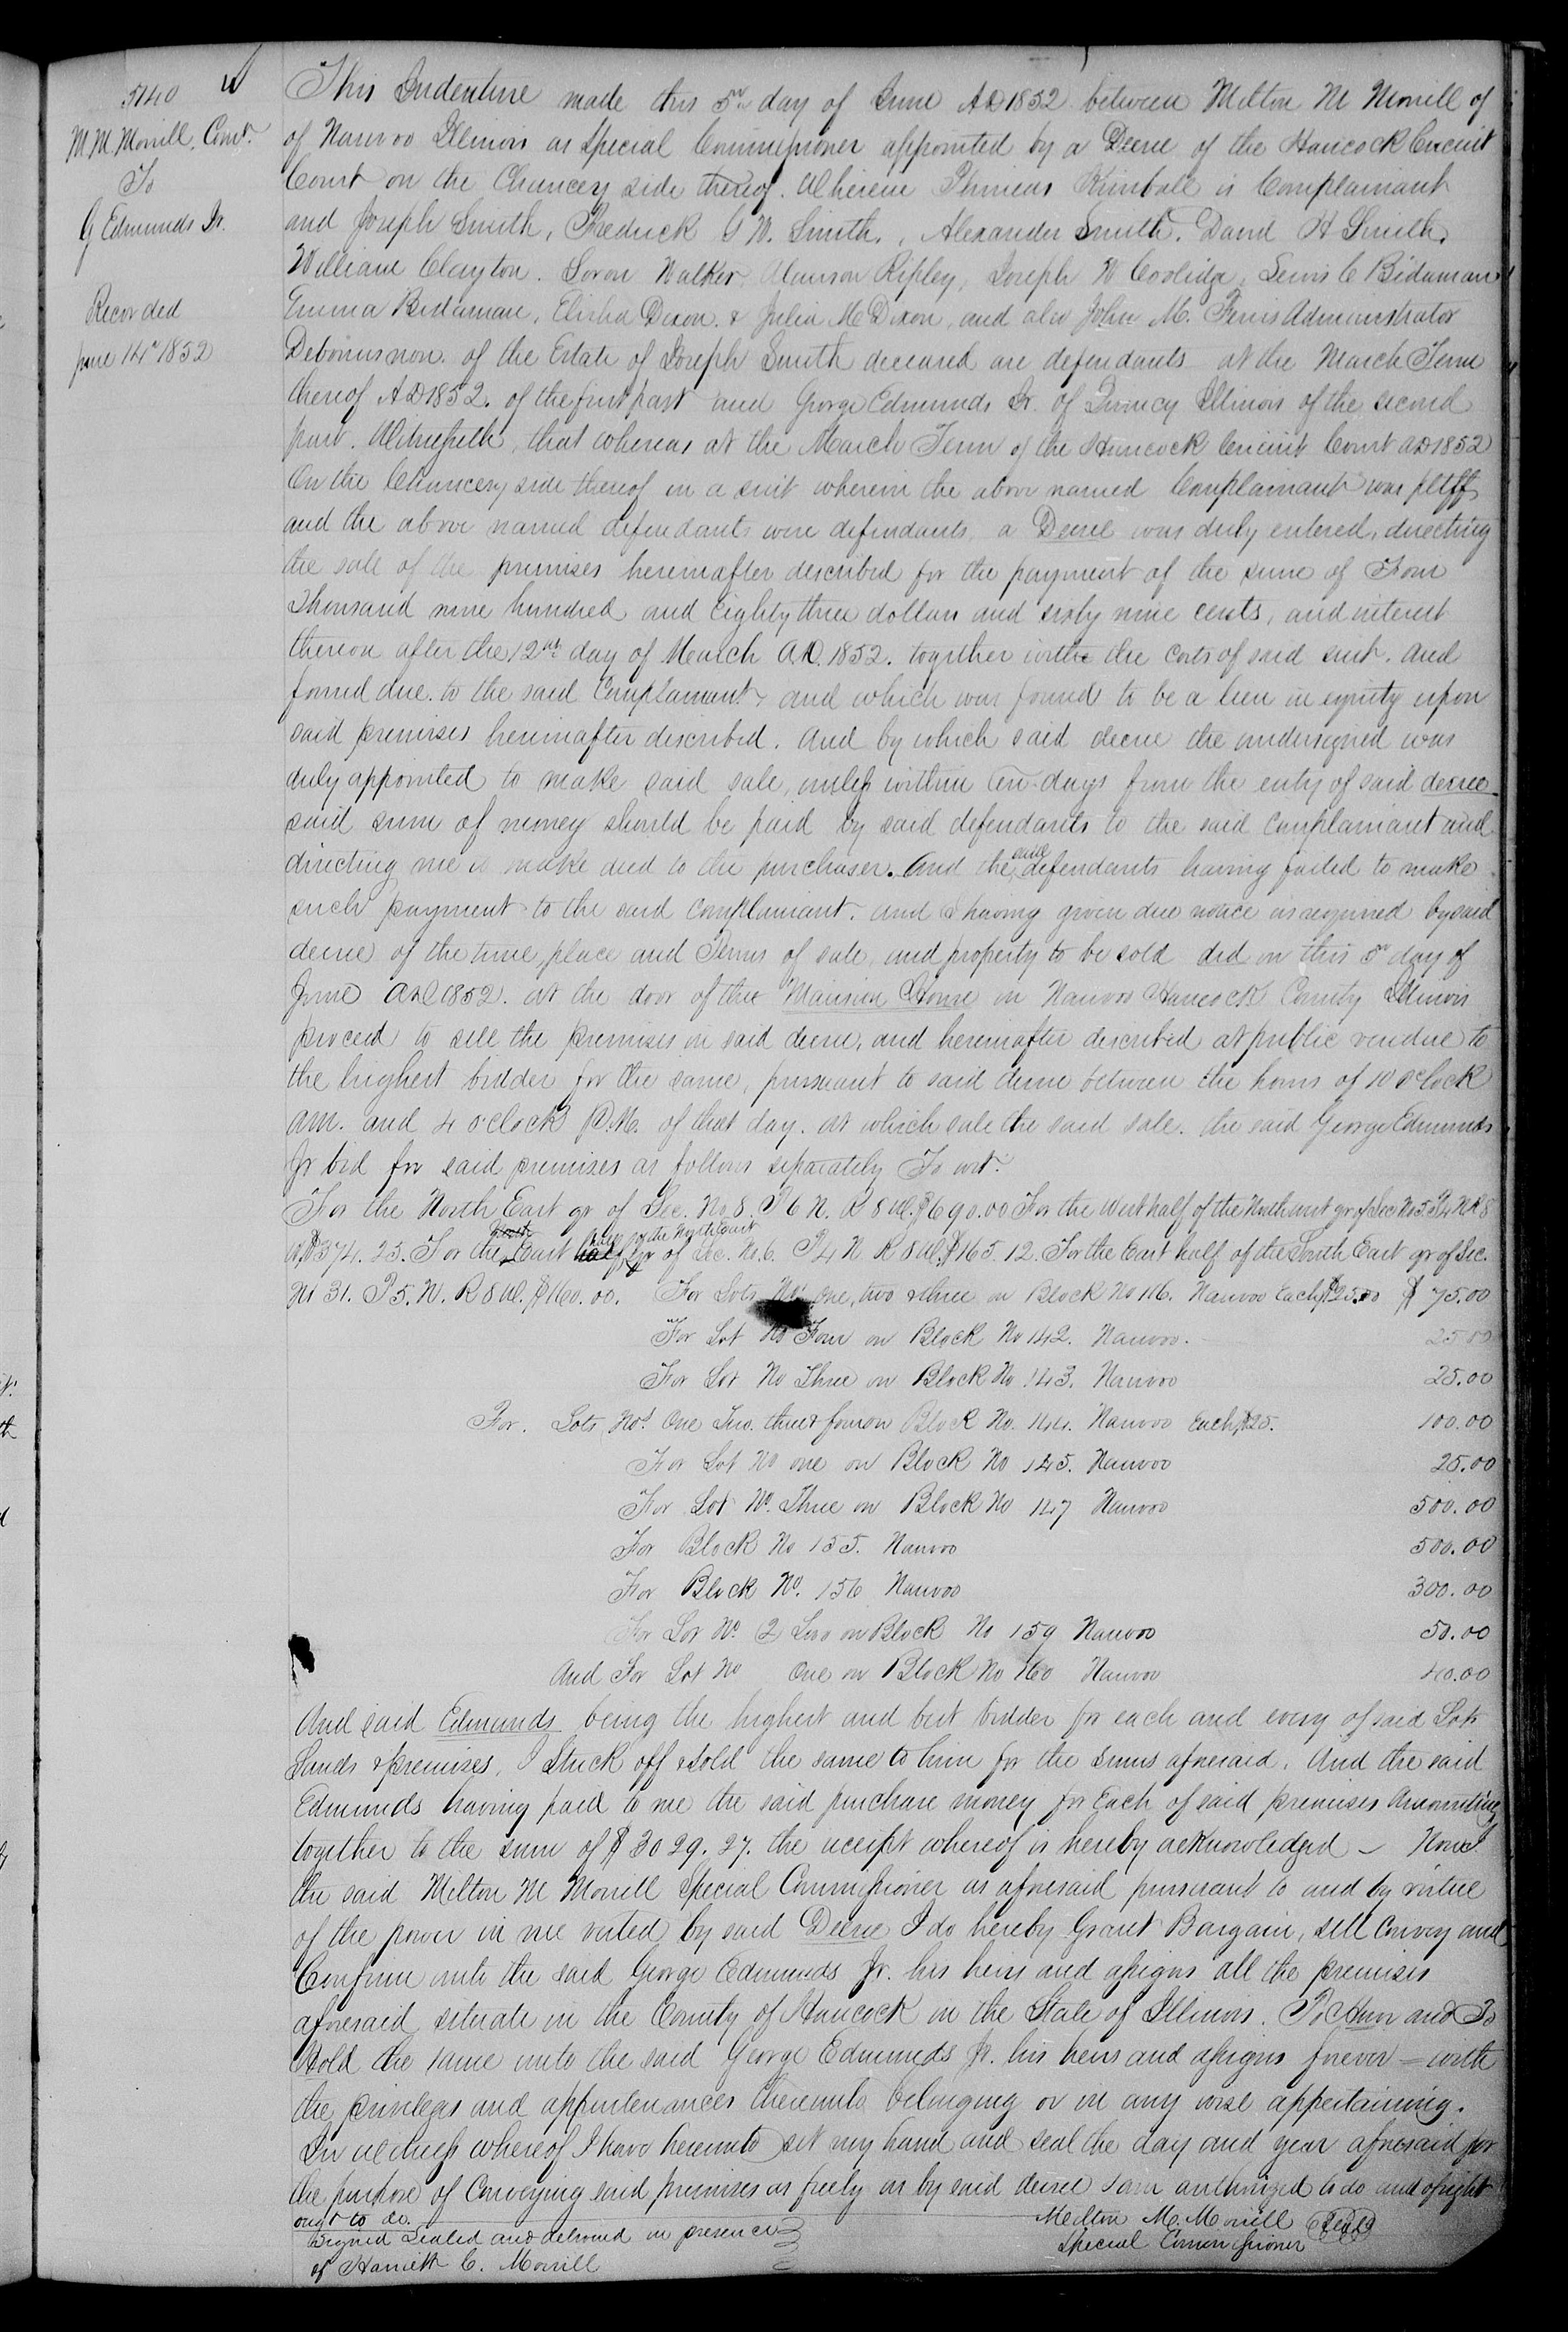 5140
M M Morrill, Comr.
To
G Edmunds Jr.
Recorded
June 14th 1852
This Indenture made this 5th day of June AD 1852 between Milton M Morrill of
of Nauvoo Illinois as Special Commissioner appointed by a Decree of the Hancock Circuit
Court on the Chancery side thereof. Wherein Phineas Kimball is Complainant
and Joseph Smith, Fredrick G W. Smith, Alexander Smith. David H Smith.
William Clayton. Loron Walker, Alanson Ripley, Joseph W Coolidge, Lewis C Bidaman
Emma Bidaman, Elisha Dixon. & Julia M Dixon, and also John M. Ferris Administrator
Debonisnon. of the Estate of Joseph Smith deceased are defendants at the March Term
thereof AD 1852. of the first part and George Edmunds Jr. of Quincy Illinois of the second
part. Witnesseth, that whereas at the March Term of the Hancock Circuit Court AD 1852
On the Chancery side thereof in a suit wherein the above named Complainant was pltff
and the above named defendants were defendants, a Decree was duly entered, directing
the sale of the premises hereinafter described for the payment of the sum of Four
Thousand nine hundred and Eighty three dollars and sixty nine cents, and interest
thereon after the 12th day of March A.D. 1852. together with the costs of said suit. And
found due. to the said Complainant, and which was found to be a lien in equity upon
said premises hereinafter discribed. And by which said decree the undersigned was
duly appointed to make said sale, unless within ten days from the entry of said decree
said sum of money should be paid by said defendants to the said complainant and
directing me to make deed to the purchaser. And the said defendants having failed to make
such payment to the said complainant. and I having given due notice as required by said
decree of the time, place and Terms of sale, and property to be sold did on this 5th day of
June AD 1852. at the door of the Mansion House in Nauvoo Hancock County Illinois
proceed to sell the premises in said decree, and hereinafter discribed at public vendue to
the highest bidder for the same, pursuant to said decree between the hours of 10 o'clock
AM. and 4 o'clock P.M. of that day. at which sale the said sale. the said George Edmunds
Jr bid for said premises as follows separately To wit:
For the North East qr of Sec. No 8. T 6 N. R 8 W. $690.00 For the West half of the North west qr of Sec No 5 T4 N R 8
W. $374.25. For the East half of the North East qr of Sec. No. 6. T 4 N R 8 W. $165.12. For the East half of the South East qr of Sec.
No 31. T 5. N. R 8 W. $160.00. For Lots Nos One, two & three on Block No 116. Nauvoo Each $25.00 $ 75.00
For Lot No Four on Block No 142. Nauvoo.
For Lot No Three on Block No 143. Nauvoo 25.00
For. Lots Nos One Two. three & four on Block No. 144. Nauvoo Each $25. 100.00
For Lot No one on Block No 145. Nauvoo 25.00
For Lot No. Three on Block No 147 Nauvoo 500.00
For Block No 155. Nauvoo 500.00
For Block No. 156 Nauvoo 300.00
For Lot No 2 Two on Block No 159 Nauvoo 50.00
And For Lot No One on Block No 160 Nauvoo 40.00
And said Edmunds being the highest and best bidder for each and every of said Lots
Lands & premises, I Stuck off & sold the same to him for the sums aforesaid. And the said
Edmunds having paid to me the said purchase money for Each of said premises Amounting
together to the sum of $3029.27. the receipt whereof is hereby acknowledged – Now I
the said Milton M Morrill Special Commissioner as aforesaid pursuant to and by virtue
of the power in me vested by said Decree I do hereby Grant Bargain, sell Convey and
Confirm unto the said George Edmunds Jr. his heirs and assigns all the premises
aforesaid situate in the County of Hancock in the State of Illinois. To Have and To
Hold the same unto the said George Edmunds Jr. his heirs and assigns forever – with
the privileges and appurtenances thereunto belonging or in any wise appertaining.
In witness whereof I have hereunto set my hand and seal the day and year aforesaid for
the purpose of Conveying said premises as freely as by said decree I am authorized to do and of right
ought to do.
Signed Sealed and delivered in presence
of Harriett C. Morrill
Milton M. Morrill Seal
Special Commissioner